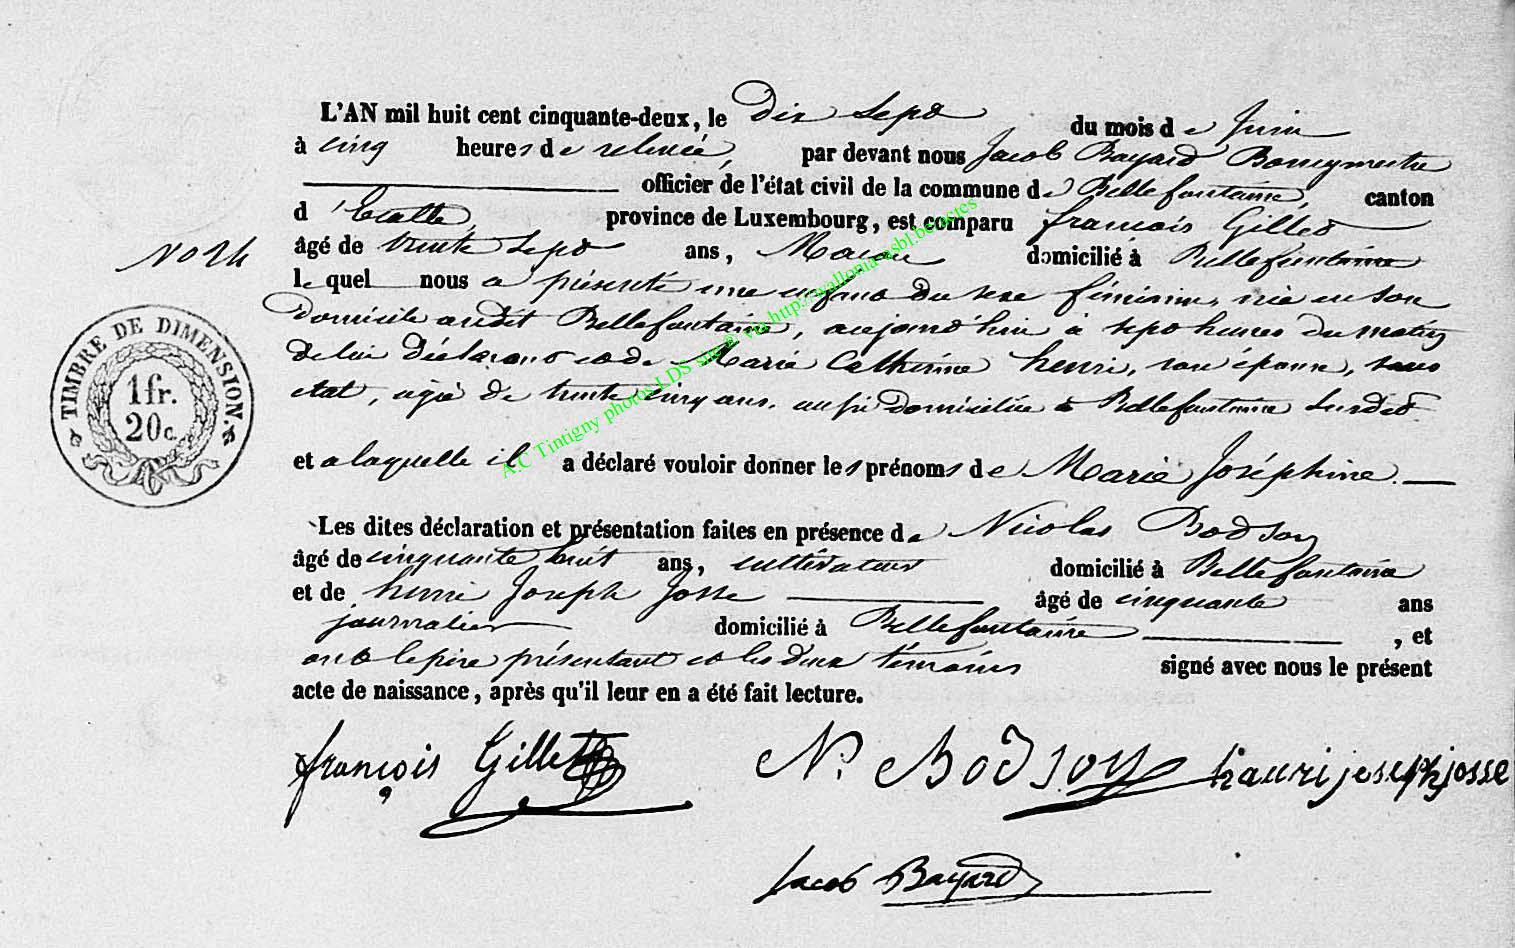 L'AN mil huit cent cinquante-deux, le dix sept du mois de Juin
à cinq heures de relevée, par devant nous Jacob Bayard Bourgmestre
officier de l'état civil de la commune de Bellefontaine, canton
d'Etalle, province de Luxembourg, est comparu françois Gillet
âgé de trente sept ans, Macon domicilié à Bellefontaine
lequel nous a présenté une enfant du sexe féminin, née en son
domicile audit Bellefontaine, aujourd'hui à sept heures du matin
de lui déclarant et de Marie Catherine henri, son épouse, sans
état, agée de trente cinq ans, aussi domiciliée à Bellefontaine susdit
et a laquelle il a déclaré vouloir donner les prénoms de Marie Joséphine.
Les dites déclaration et présentation faites en présence de Nicolas Bodson
âgé de cinquante huit ans, cultivateur domicilié à Bellefontaine
et de henri Joseph Josse âgé de cinquante ans
journalier domicilié à Bellefontaine, et
ont le père présentant et les deux témoins signé avec nous le présent
acte de naissance, après qu'il leur en a été fait lecture.
No 24
TIMBRE DE DIMENSION.
1fr.
20c.
françois Gillet N. Bodson hauri joseph josse
Jacob Bayard
A.C Tintigny photos LDS